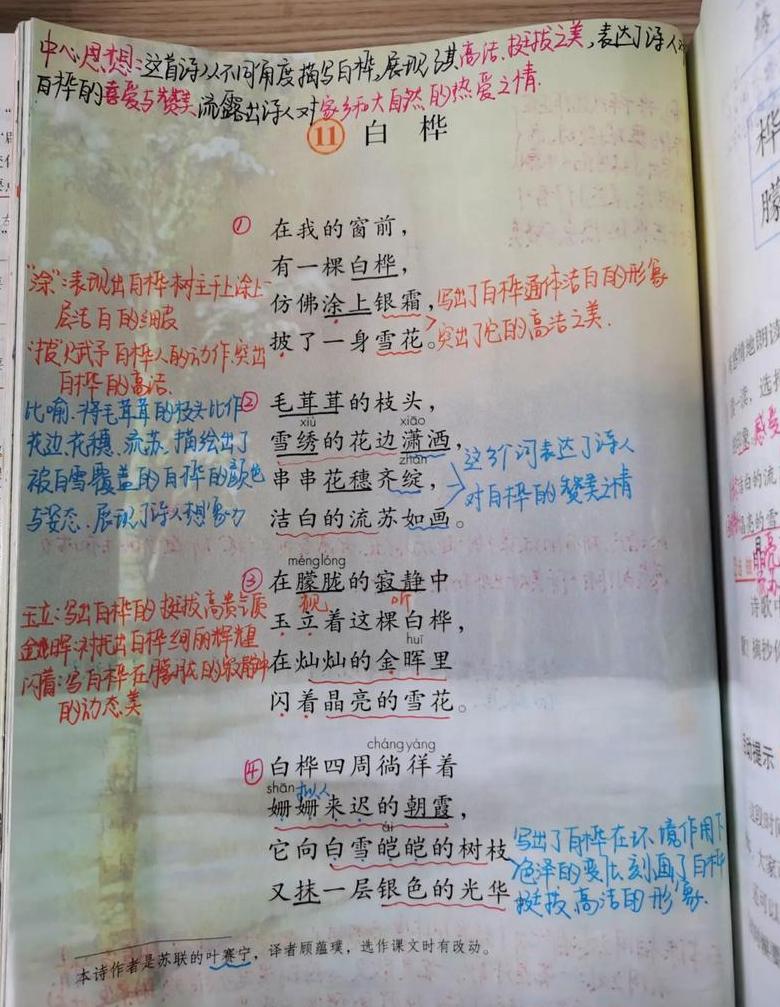 中心思想:这首诗从不同角度描写白桦,展现了其高洁、挺拔之美,表达了诗人对
白桦的喜爱与赞美 流露出诗人对家乡和大自然的热爱之情.
11 白桦
① 在我的窗前，
有一棵白桦，
仿佛涂上银霜，
披了一身雪花。
"涂":表现出白桦树主干上涂上一
层洁白的细皮
"披"赋予白桦人的动作.突出
白桦的高洁.
写出了白桦通体洁白的形象
突出了它的高洁之美.
② 毛茸茸的枝头，
xiù xiāo
雪绣的花边潇洒，
zhàn
串串花穗齐绽，
洁白的流苏如画。
比喻.将毛茸茸的枝头比作
花边、花穗、流苏.描绘出了
被白雪覆盖的白桦的颜色
与姿态.展现了诗人想象力
这3个词表达了诗人
对白桦的赞美之情
ménglóng
③ 在朦胧的寂静中
视 听
玉立着这棵白桦，
huī
在灿灿的金晖里
闪着晶亮的雪花。
玉立:写出白桦的挺拔高贵气质
金晖:衬托出白桦绚丽辉煌
闪着:写白桦在朦胧的寂静中
的动态美
cháng yáng
④ 白桦四周徜徉着
shān 拟人
姗姗来迟的朝霞，
ái
它向白雪皑皑的树枝
又抹一层银色的光华
写出了白桦在环境作用下
色泽的变化.刻画了白桦
挺拔高洁的形象.
本诗作者是苏联的叶赛宁，译者顾蕴璞，选作课文时有改动。
桦
朦
情地朗读
感受
洁白的流
诗歌
摘抄
动提示